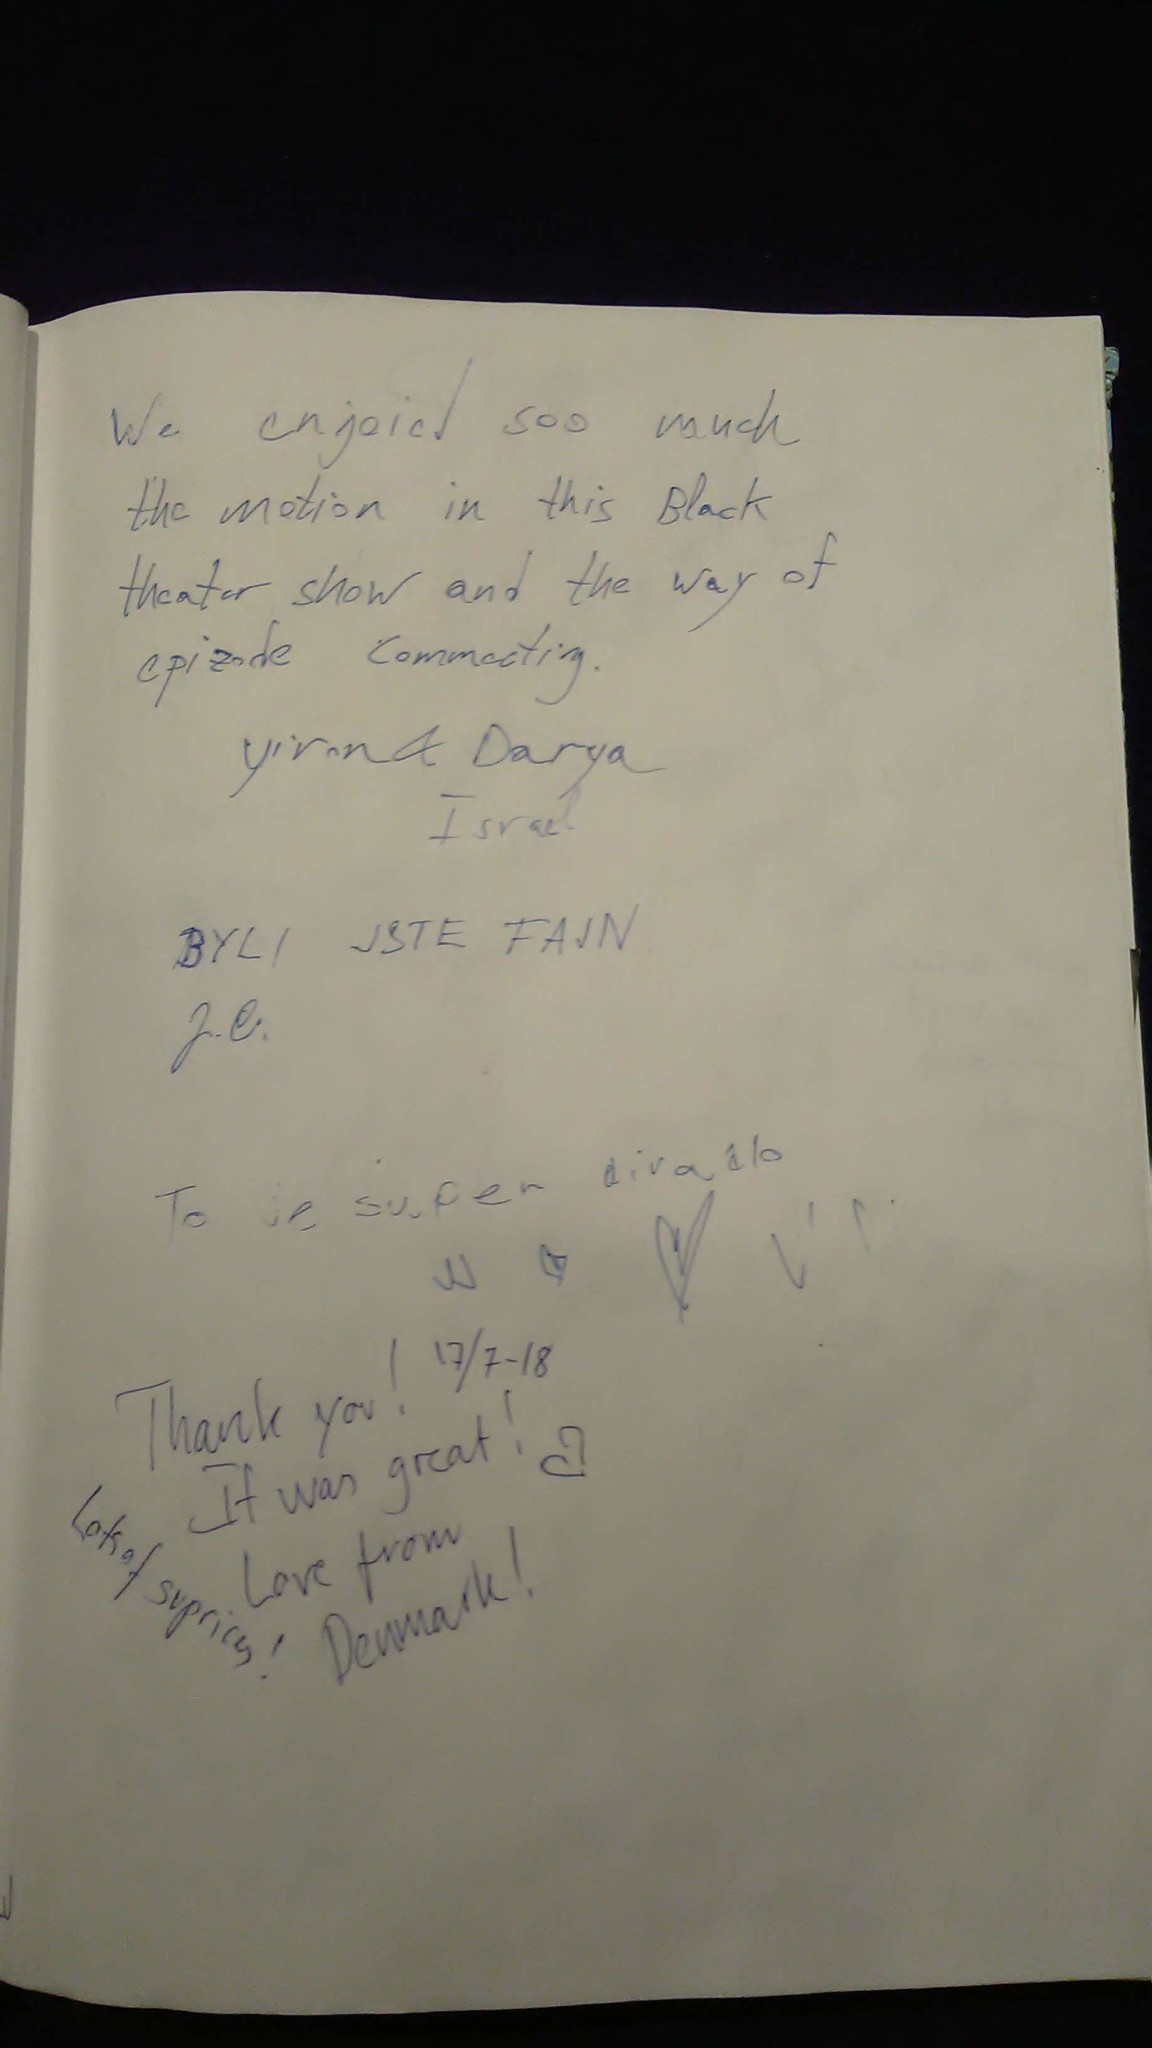 We enjoied soo much
the motion in this Black
theater show and the way of
epizode commecting.
Yiron & Darya
Israel
BYLI JSTE FAJN
J.C.
To je super divadlo
Thank you! 17/7-18
It was great!
Love from
Denmark!
Lots of suprices!